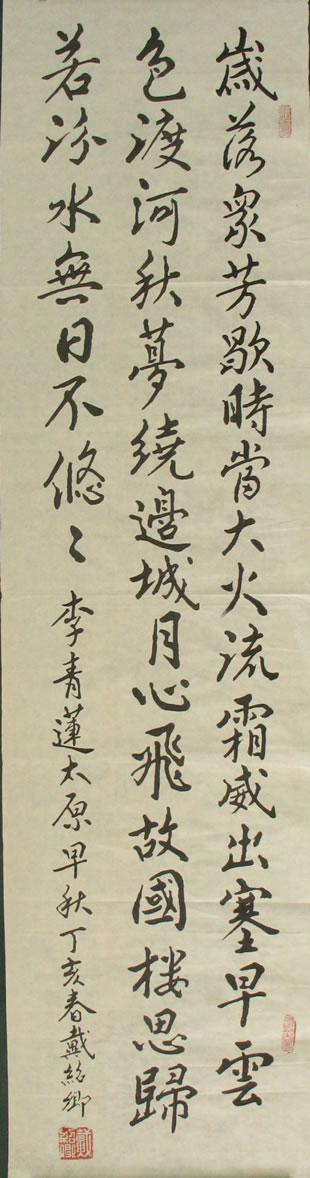 歲落眾芳歇時當大火流霜威出塞早雲
色渡河秋夢繞邊城月心飛故國樓思歸
若汾水無日不悠〻
李青蓮太原早秋丁亥春戴紹卿